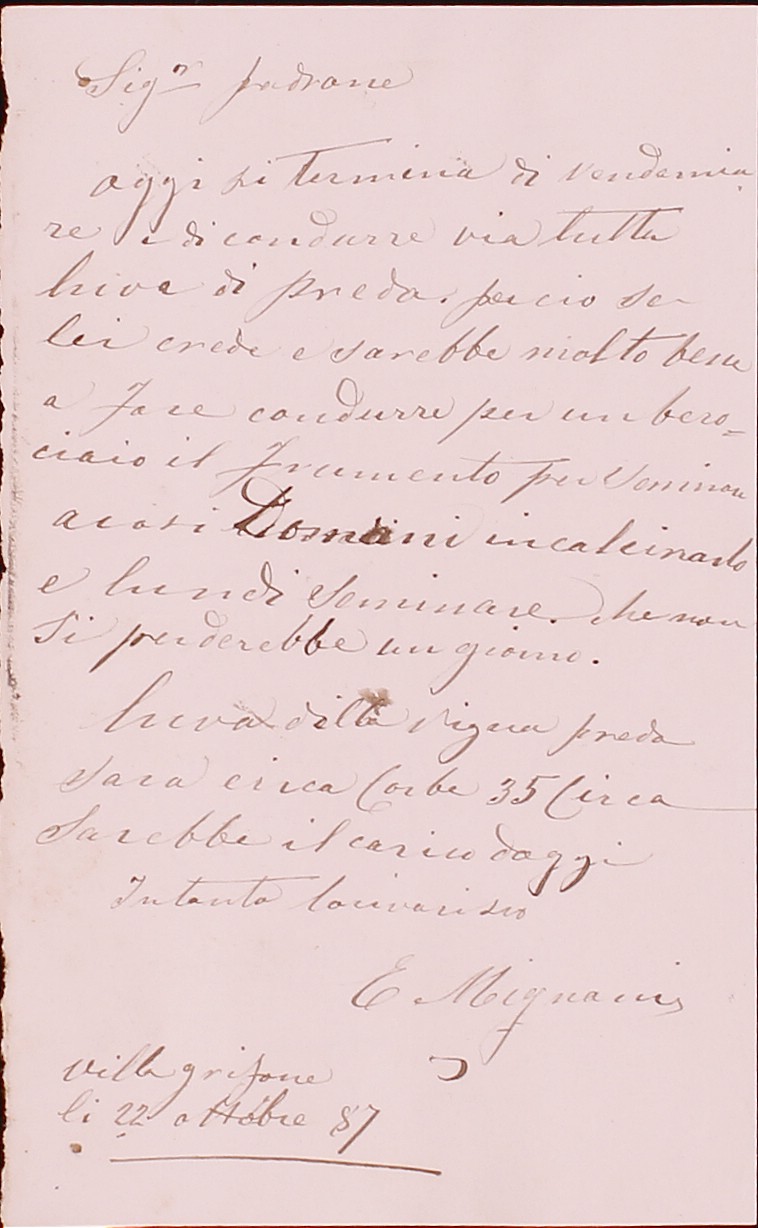 Sigr padrone
oggi si termina di vendemia
re e di condurre via tutta
luva di preda. percio se
lei crede e sarebbe molto bene
a fare condurre per un biro=
ciaio il frumento per seminare
acosi Domani incalcinarlo
e lundi seminare. che non
si perderebbe un giorno.
luva dilla vigna preda
sara circa Corbe 35 Circa
sarebbe il carico doggi
Intanto lo riverisco
E Mignani
villa grifone
li 22 ottobre 87